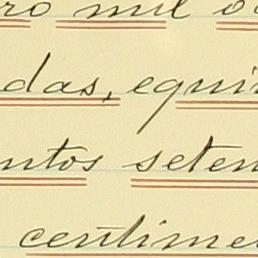 ro mil o
das, equi
ntos seten
centíme